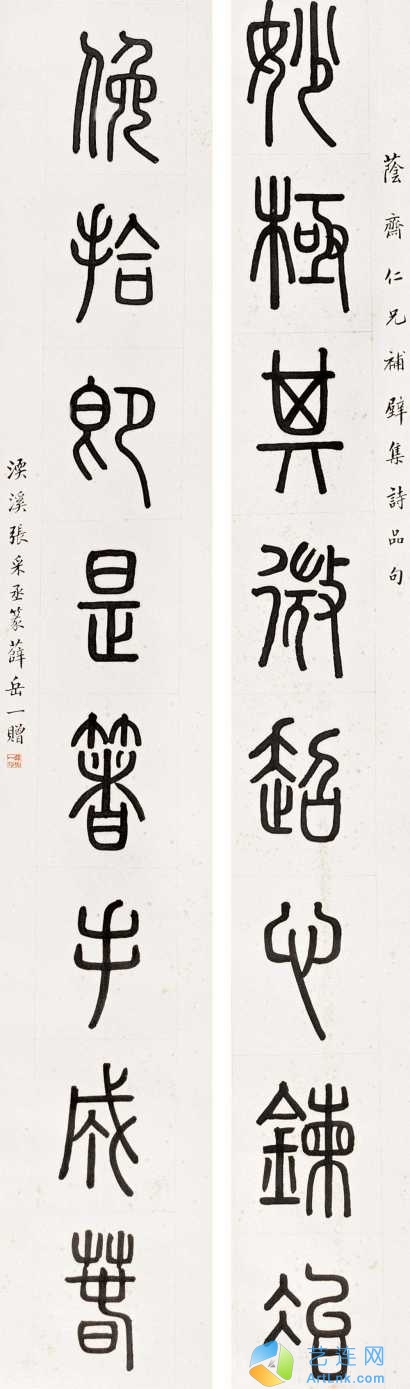 蔭齋仁兄補壁集詩品句
妙極其微超心鍊冶
俛拾即是箸手成萅
溪張采丞篆薛岳一贈
艺连网
ArtLnk.com